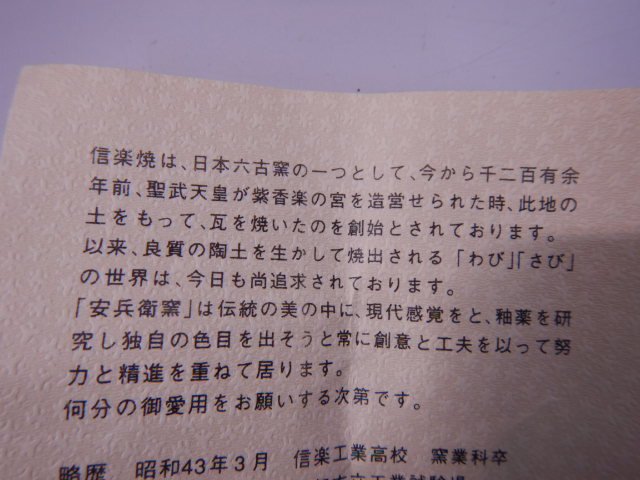 信楽焼は、日本六古窯の一つとして、今から千二百有余
年前、聖武天皇が紫香楽の宮を造営せられた時、此地の
土をもって、瓦を焼いたのを創始とされております。
以来、良質の陶土を生かして焼出される「わび」「さび」
の世界は、今日も尚追求されております。
「安兵衛窯」は伝統の美の中に、現代感覚をと、釉薬を研
究し独自の色目を出そうと常に創意と工夫を以って努
力と精進を重ねて居ります。
何分の御愛用をお願いする次第です。
略歴 昭和43年3月 信楽工業高校 窯業科卒